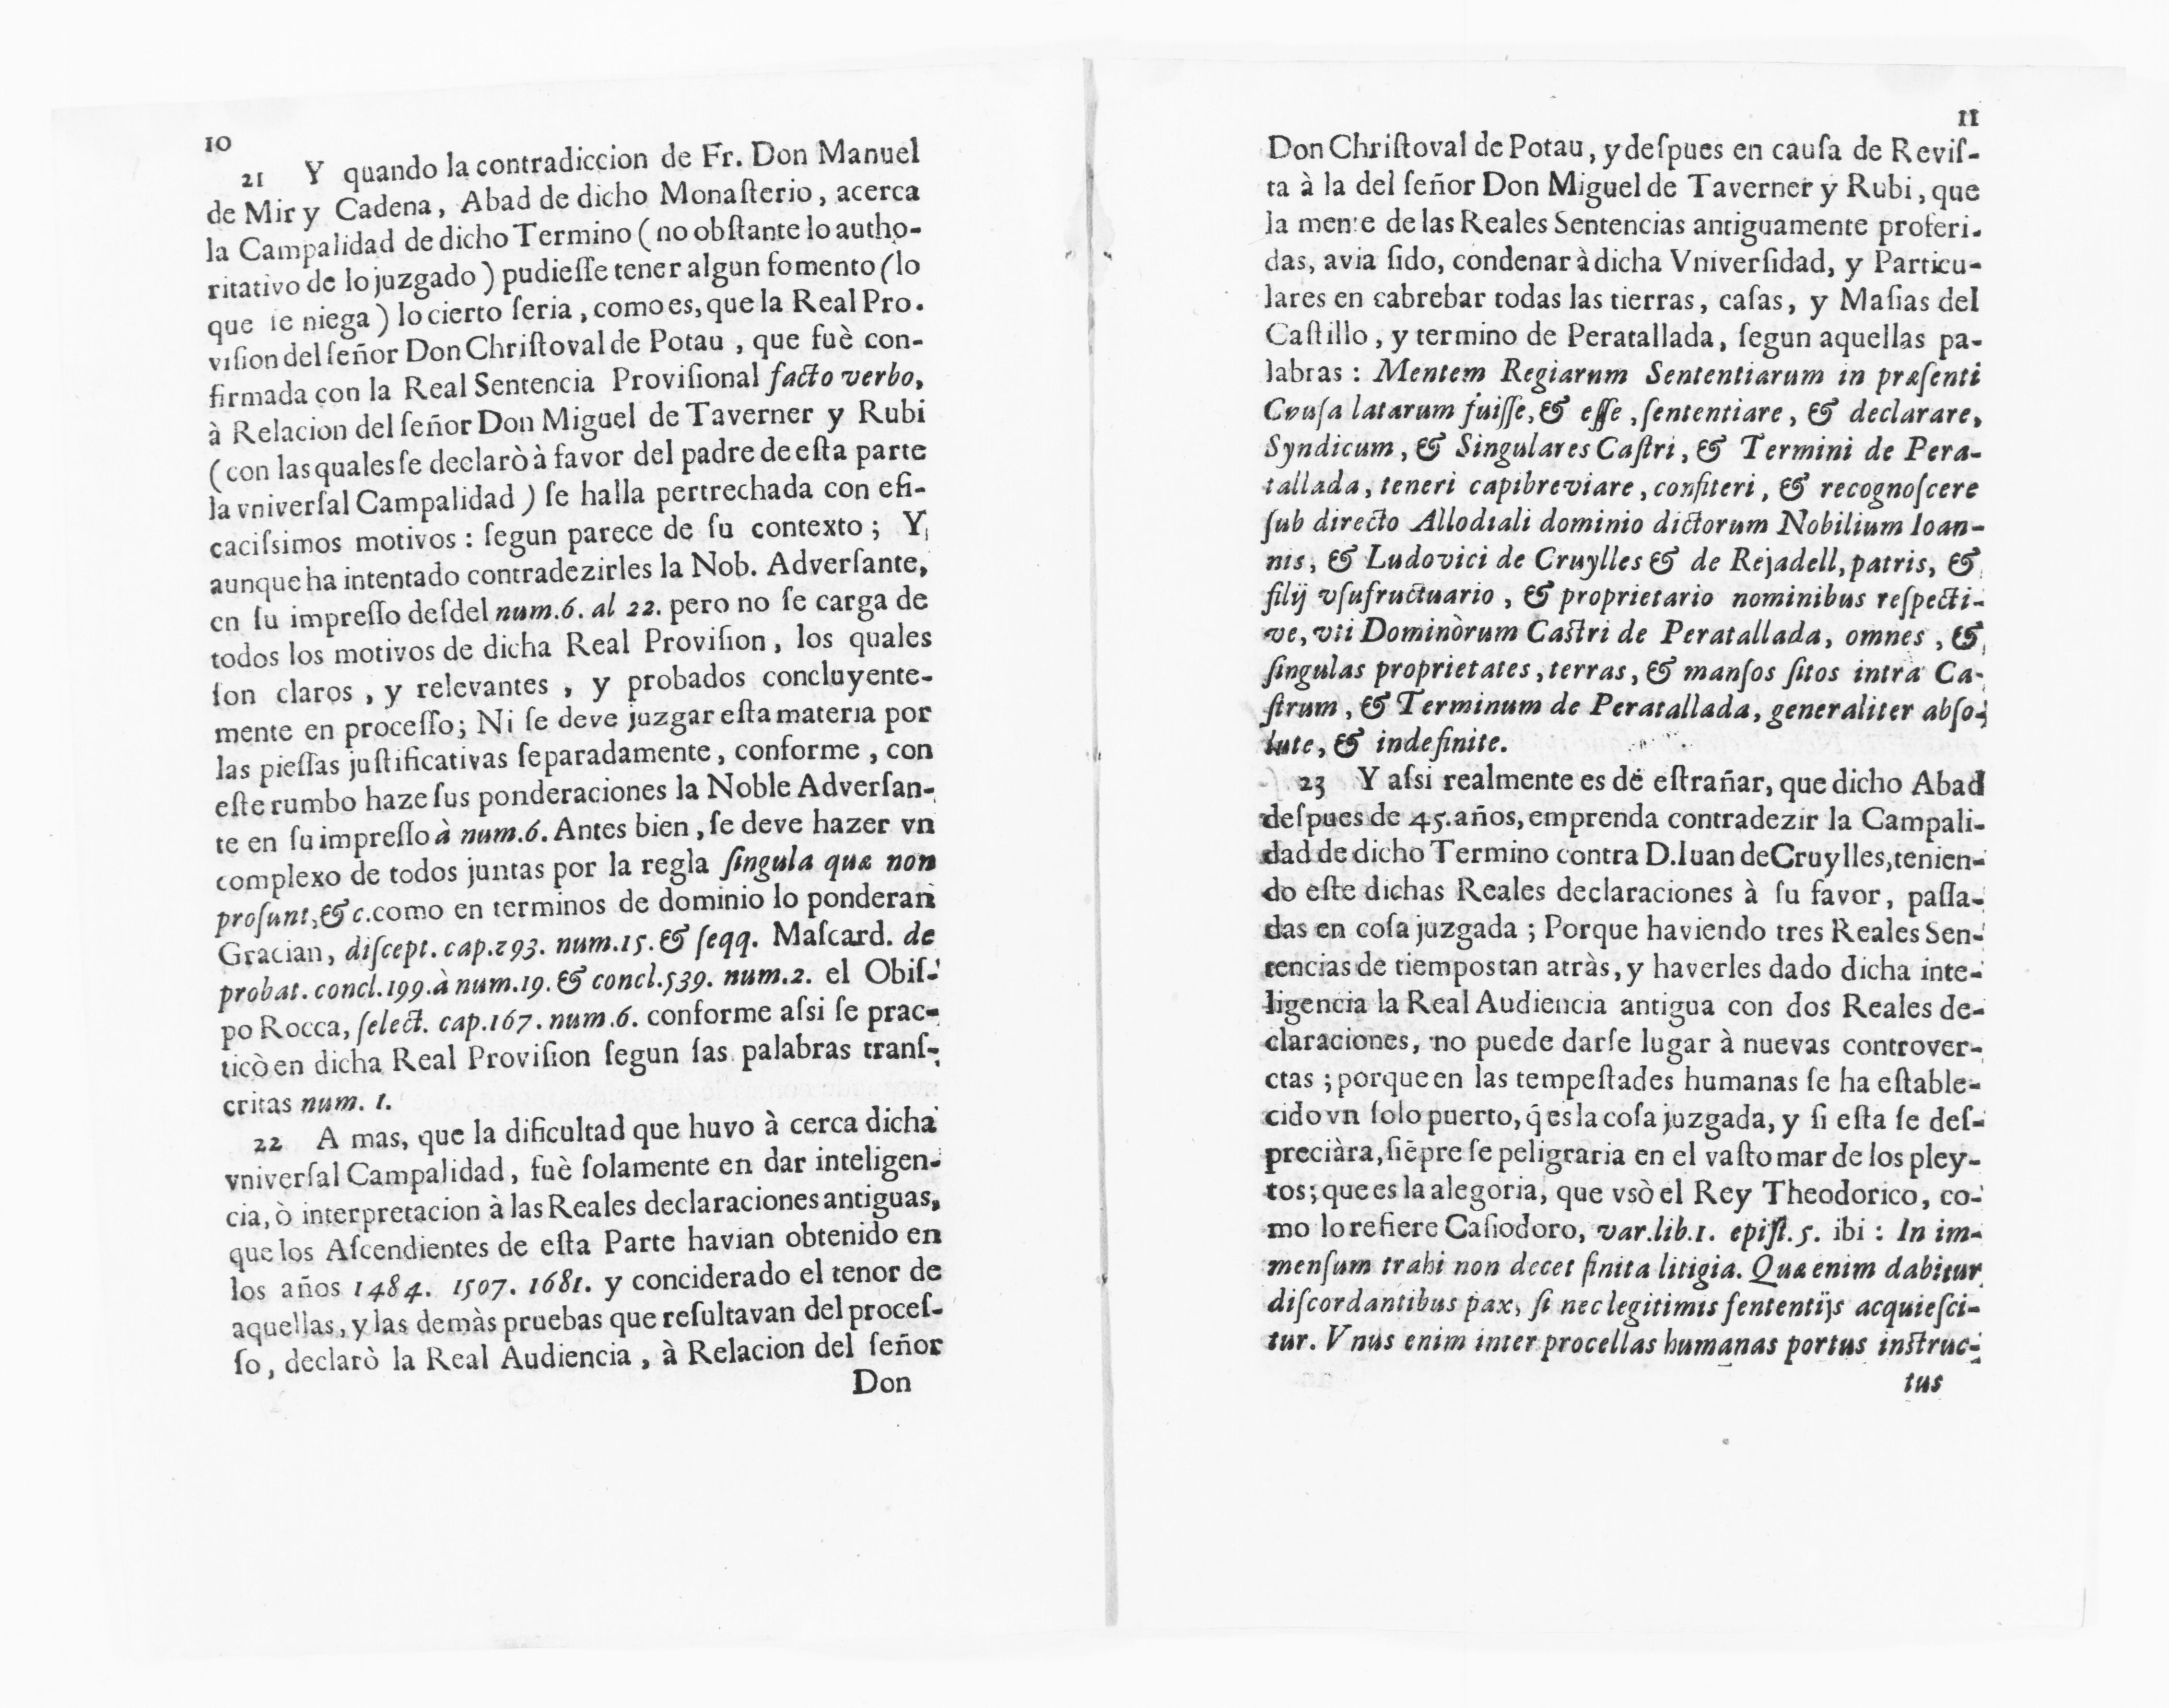 10
21 Y quando la contradiccion de Fr. Don Manuel
de Mir y Cadena, Abad de dicho Monaſterio, acerca
la Campalidad de dicho Termino (no obſtante lo autho-
ritativo de lo juzgado) pudieſſe tener algun fomento (lo
que ſe niega) lo cierto ſeria, como es, que la Real Pro.
viſion del ſeñor Don Chriſtoval de Potau, que fuè con-
firmada con la Real Sentencia Proviſional facto verbo,
à Relacion del ſeñor Don Miguel de Taverner y Rubi
(con las quales ſe declarò à favor del padre de eſta parte
la vniverſal Campalidad) ſe halla pertrechada con efi-
caciſsimos motivos: ſegun parece de ſu contexto; Y
aunque ha intentado contradezirles la Nob. Adverſante,
en ſu impreſſo deſdel num.6. al 22. pero no ſe carga de
todos los motivos de dicha Real Proviſion, los quales
ſon claros, y relevantes, y probados concluyente-
mente en proceſſo; Ni ſe deve juzgar eſta materia por
las pieſſas juſtificativas ſeparadamente, conforme, con
eſte rumbo haze ſus ponderaciones la Noble Adverſan-
te en ſu impreſſo à num.6. Antes bien, ſe deve hazer vn
complexo de todos juntas por la regla ſingula quæ non
proſunt, & c. como en terminos de dominio lo ponderan
Gracian, diſcept. cap.293. num.15. & ſeqq. Maſcard. de
probat. concl.199. à num.19. & concl.539. num.2. el Obiſ-
po Rocca, ſelect. cap.167. num.6. conforme aſsi ſe prac-
ticò en dicha Real Proviſion ſegun ſas palabras tranſ-
critas num. 1.
22 A mas, que la dificultad que huvo à cerca dicha
vniverſal Campalidad, fuè ſolamente en dar inteligen-
cia, ò interpretacion à las Reales declaraciones antiguas,
que los Aſcendientes de eſta Parte havian obtenido en
los años 1484. 1507. 1681. y conciderado el tenor de
aquellas, y las demàs pruebas que reſultavan del proceſ-
ſo, declarò la Real Audiencia, à Relacion del ſeñor
Don
11
Don Chriſtoval de Potau, y deſpues en cauſa de Reviſ-
ta à la del ſeñor Don Miguel de Taverner y Rubi, que
la mente de las Reales Sentencias antiguamente proferi.
das, avia ſido, condenar à dicha Vniverſidad, y Particu-
lares en cabrebar todas las tierras, caſas, y Maſias del
Caſtillo, y termino de Peratallada, ſegun aquellas pa-
labras: Mentem Regiarum Sententiarum in præſenti
Cauſa latarum fuiſſe, & eſſe, ſententiare, & declarare,
Syndicum, & Singulares Caſtri, & Termini de Pera-
tallada, teneri capibreviare, confiteri, & recognoſcere
ſub directo Allodiali dominio dictorum Nobilium Ioan-
nis, & Ludovici de Cruylles & de Rejadell, patris, &
filij vſufructuario, & proprietario nominibus reſpecti-
ve, vti Dominòrum Caſtri de Peratallada, omnes, &
ſingulas proprietates, terras, & manſos ſitos intra Ca-
ſtrum, & Terminum de Peratallada, generaliter abſo-
lute, & indefinite.
23 Y aſsi realmente es de eſtrañar, que dicho Abad
deſpues de 45. años, emprenda contradezir la Campali-
dad de dicho Termino contra D. Iuan de Cruylles, tenien-
do eſte dichas Reales declaraciones à ſu favor, paſſa-
das en coſa juzgada; Porque haviendo tres Reales Sen-
tencias de tiempos tan atràs, y haverles dado dicha inte-
ligencia la Real Audiencia antigua con dos Reales de-
claraciones, no puede darſe lugar à nuevas controver-
ctas; porque en las tempeſtades humanas ſe ha eſtable-
cido vn ſolo puerto, q̃ es la coſa juzgada, y ſi eſta ſe deſ-
preciàra, ſiẽpre ſe peligraria en el vaſto mar de los pley-
tos; que es la alegoria, que vsò el Rey Theodorico, co-
mo lo refiere Caſiodoro, var.lib.1. epiſt.5. ibi: In im-
menſum trahi non decet finita litigia. Quæ enim dabitur
diſcordantibus pax, ſi nec legitimis ſententijs acquieſci-
tur. Vnus enim inter procellas humanas portus inſtruc-
tus